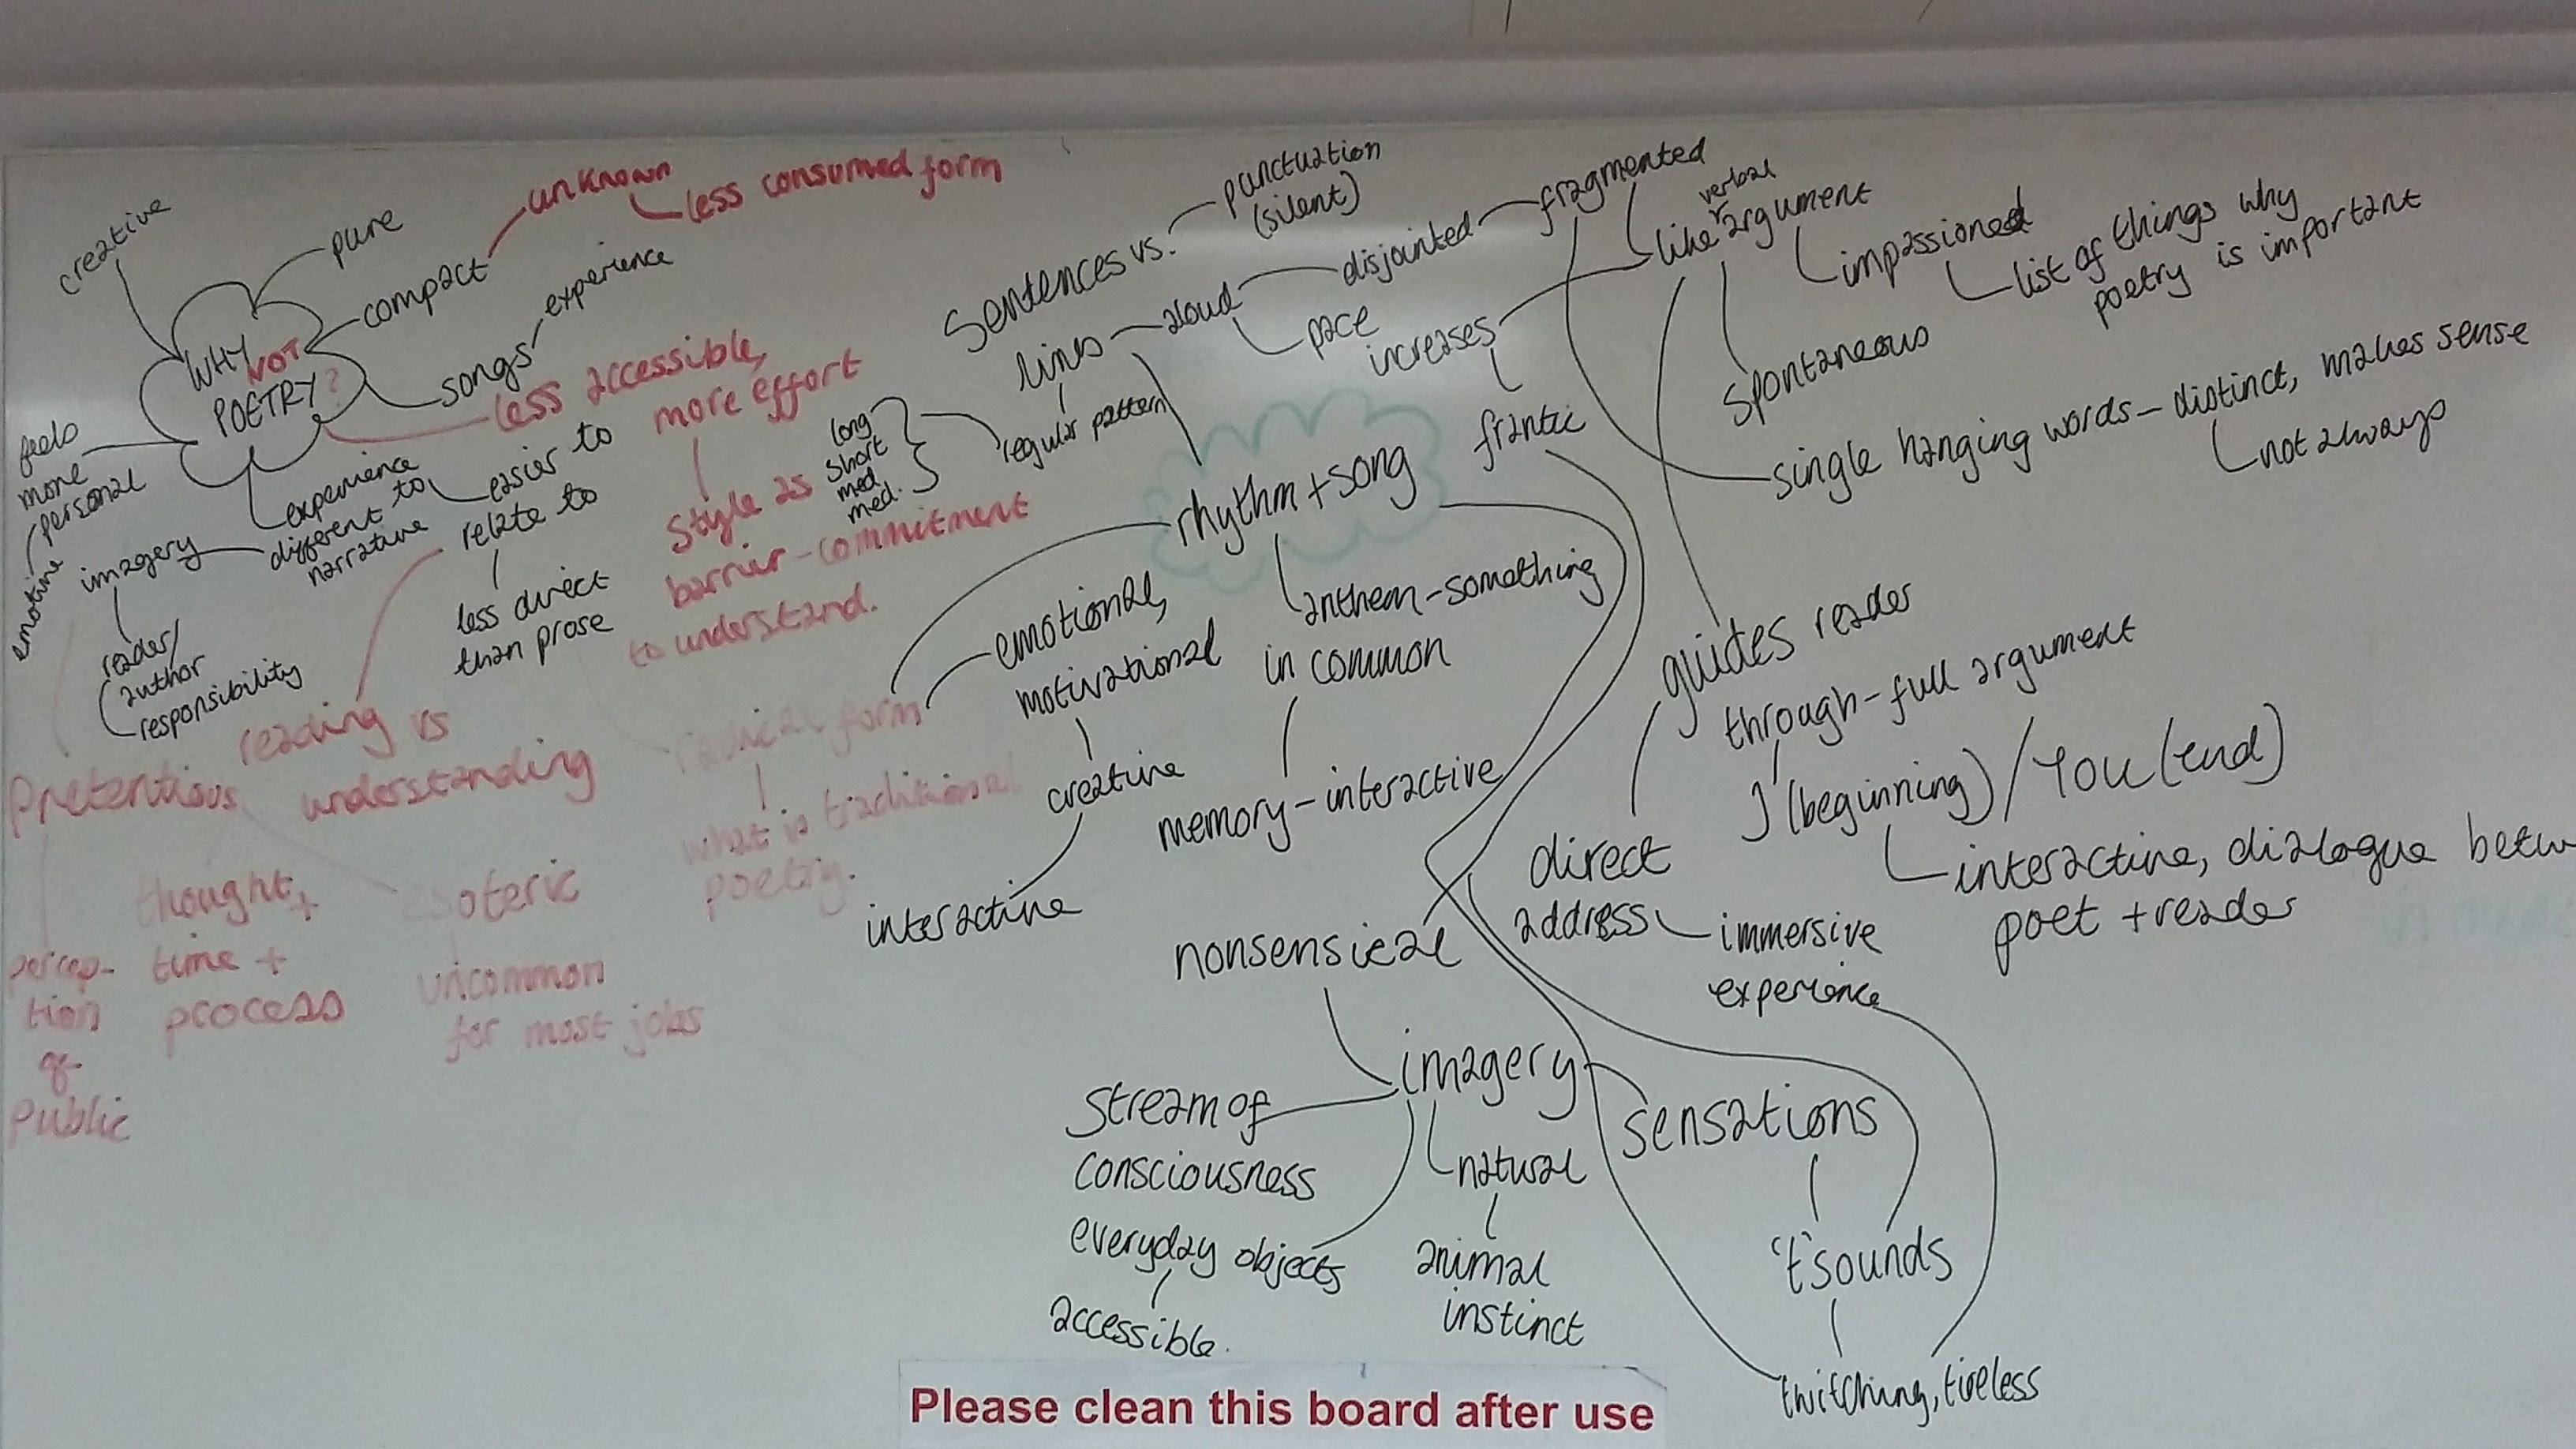 creative
pure
compact
unknown
less consumed form
WHY
NOT
POETRY?
songs
experience
less accessible,
more effort
Style as
barrier - commitment
to understand.
long
short
med
med.
regular pattern
feels
more
personal
emotive
imagery
reader/
author
responsibility
experience
different to
narrative
easier to
relate to
less direct
than prose
reading vs
understanding
Pretentious
percep-
tion
of
public
thought +
time +
process
esoteric
uncommon
for most jobs
radical form
what is traditional
poetry.
Sentences vs.
lines
punctuation
(silent)
aloud
disjointed
fragmented
pace
increases
frantic
verbal
like argument
impassioned
list of things why
poetry is important
spontaneous
single hanging words - distinct, makes sense
not always
rhythm + song
anthem - something
in common
memory - interactive
emotional,
motivational
creative
interactive
guides reader
through - full argument
I (beginning) / You (end)
interactive, dialogue betw
poet + reader
direct
address
immersive
experience
nonsensical
imagery
stream of
consciousness
everyday objects
accessible.
natural
animal
instinct
sensations
't' sounds
twitching, tireless
Please clean this board after use